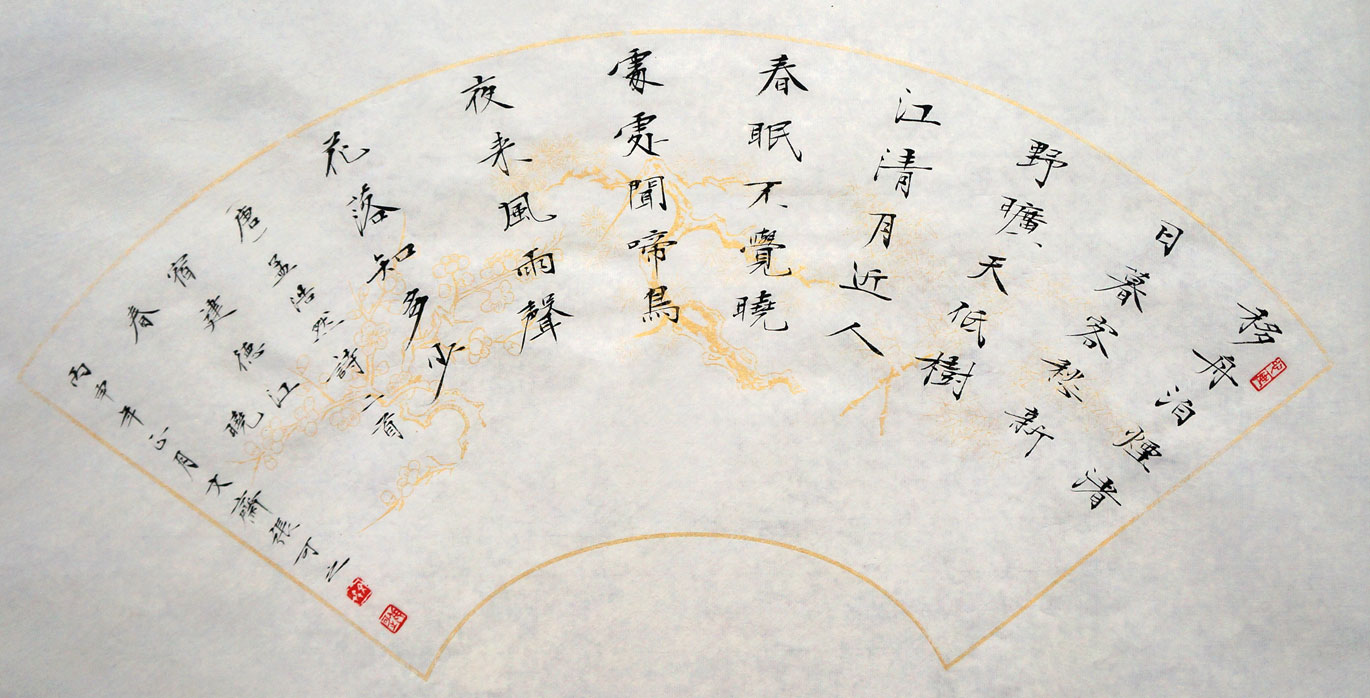 移舟泊煙渚
日暮客愁新
野曠天低樹
江清月近人
春眠不覺曉
處處聞啼鳥
夜来風雨聲
花落知多少
唐孟浩然詩二首
宿建德江
春曉
丙申年正月大齋張可之